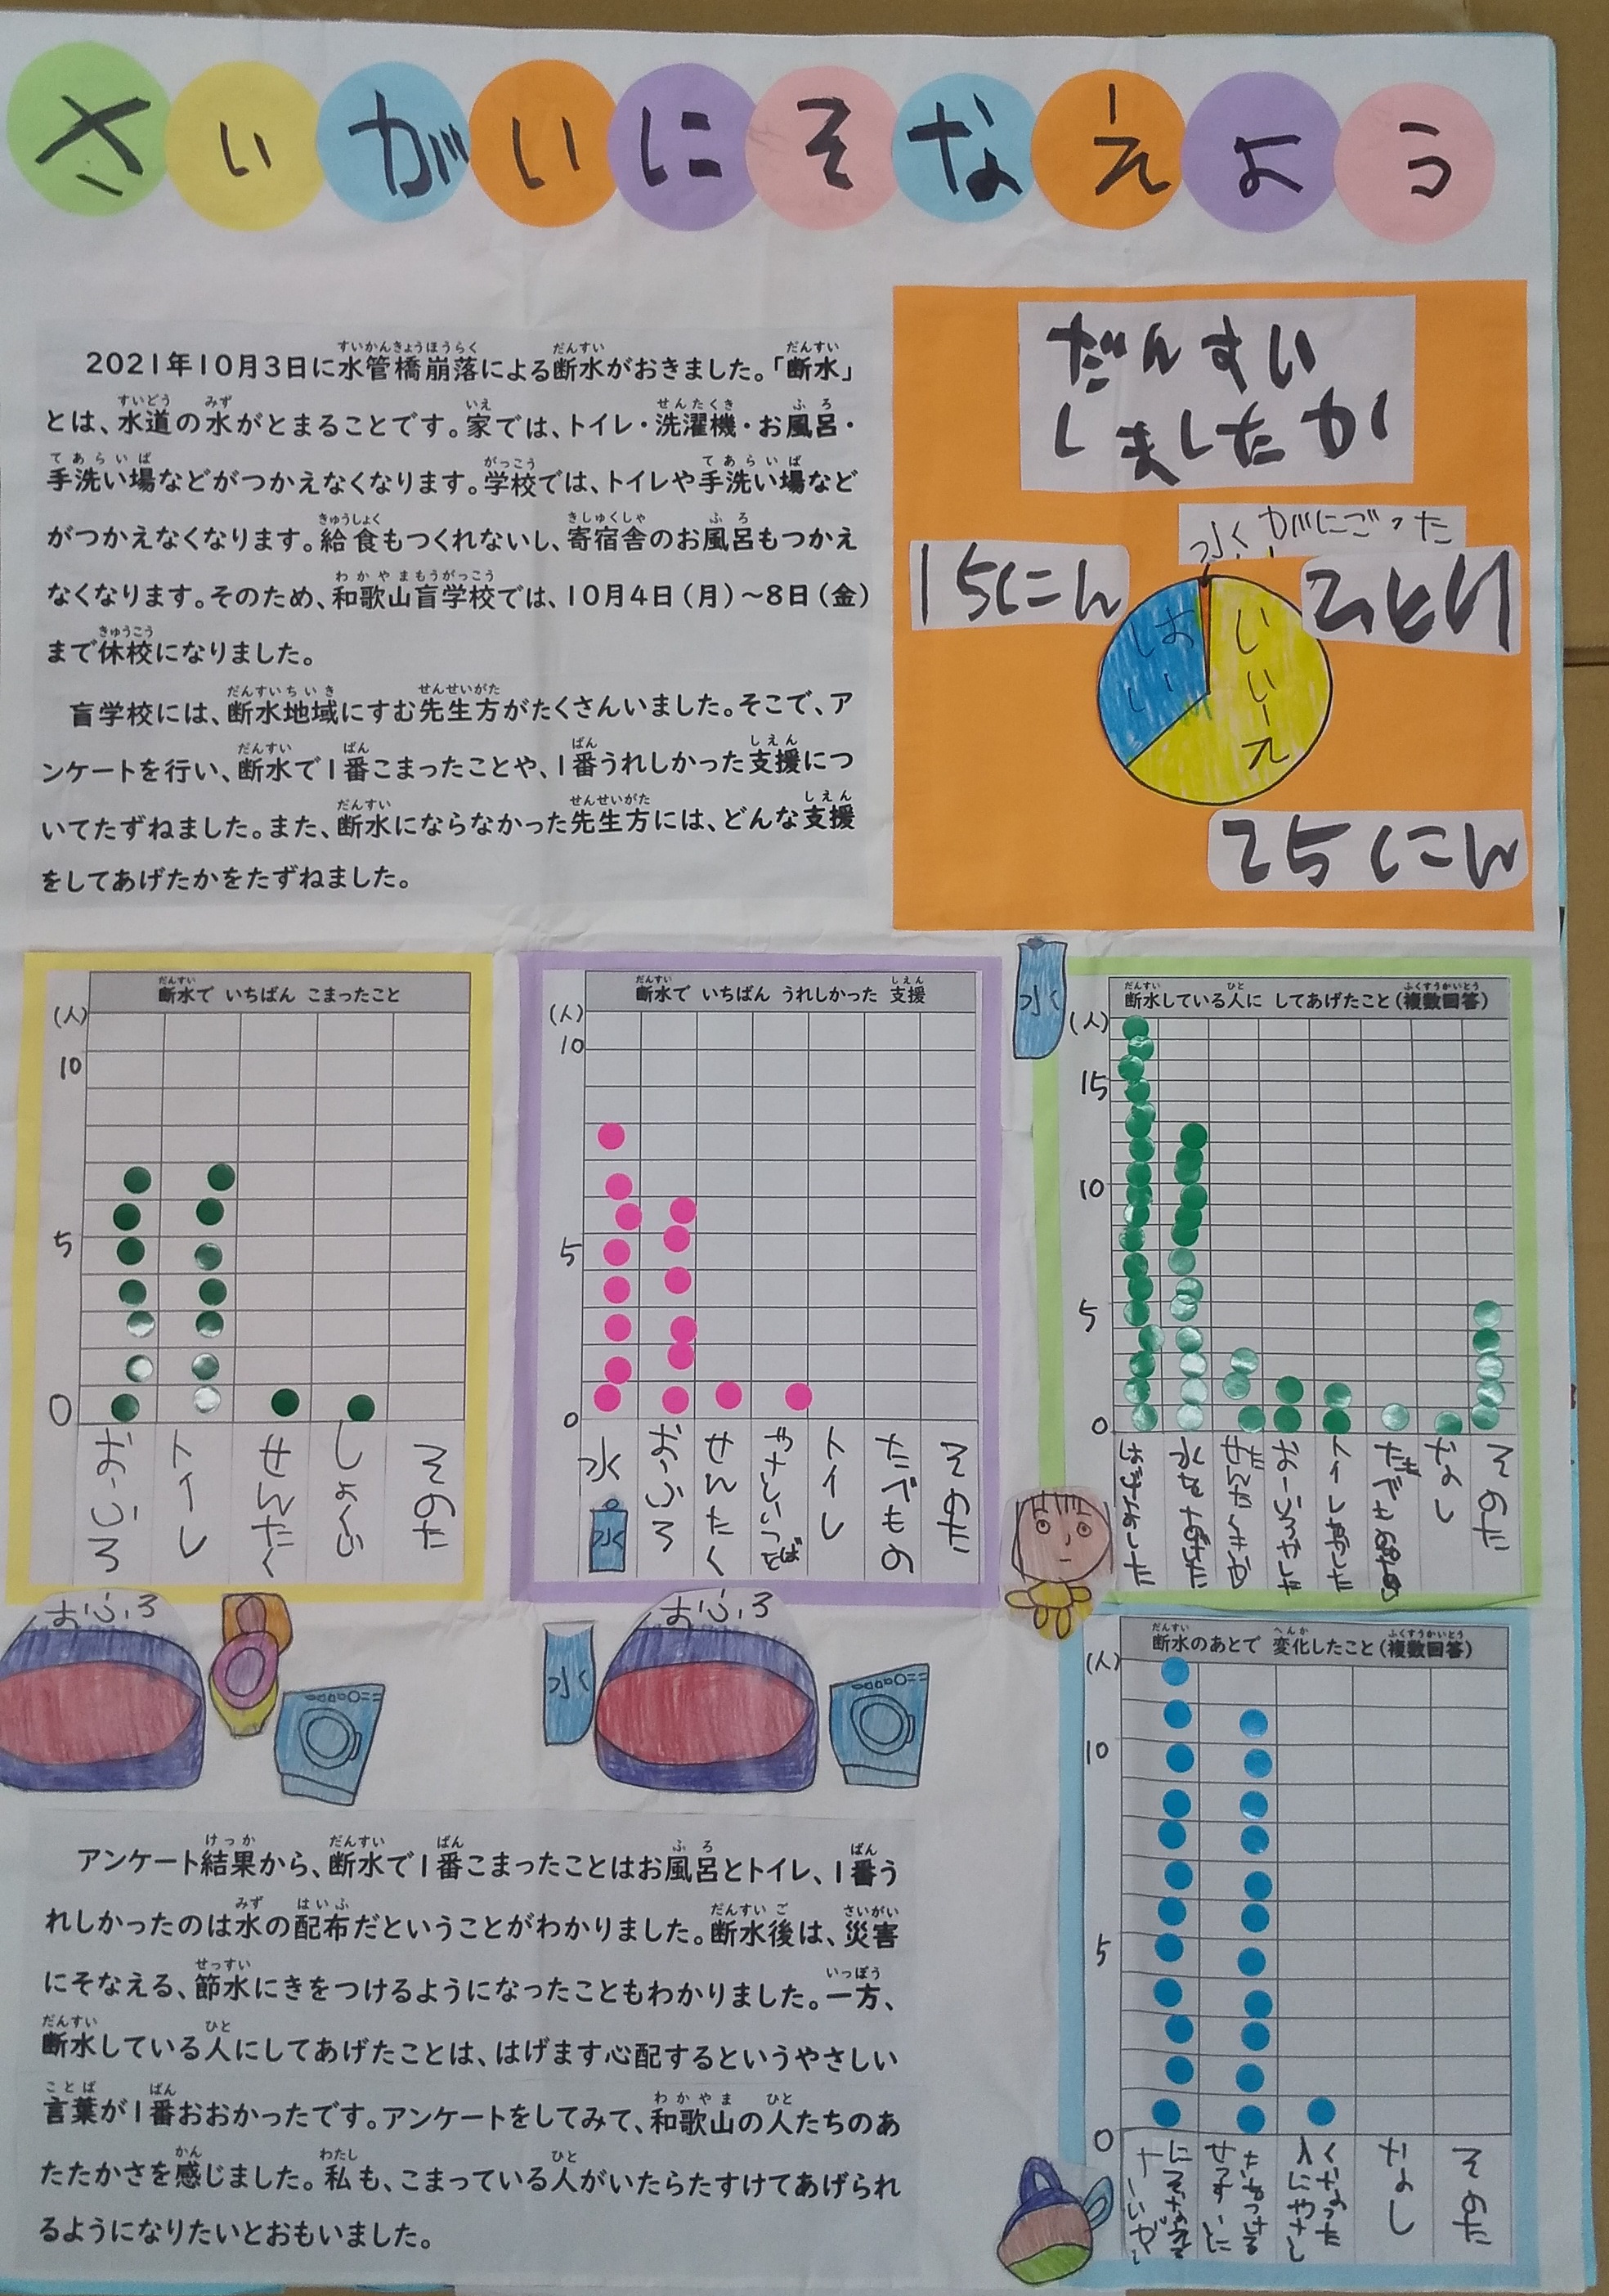 さいがいにそなえよう
2021年10月3日に水管橋崩落による断水がおきました。「断水」
とは、水道の水がとまることです。家では、トイレ・洗濯機・お風呂・
手洗い場などがつかえなくなります。学校では、トイレや手洗い場など
がつかえなくなります。給食もつくれないし、寄宿舎のお風呂もつかえ
なくなります。そのため、和歌山盲学校では、10月4日(月)~8日(金)
まで休校になりました。
盲学校には、断水地域にすむ先生方がたくさんいました。そこで、ア
ンケートを行い、断水で1番こまったことや、1番うれしかった支援につ
いてたずねました。また、断水にならなかった先生方には、どんな支援
をしてあげたかをたずねました。
だんすい
しましたか
水がにごった
15にん
ひとり
はい
いいえ
25にん
断水で いちばん こまったこと
(人)
10
5
0
おふろ
トイレ
せんたく
しょくじ
そのた
断水で いちばん うれしかった 支援
(人)
10
5
0
水
おふろ
せんたく
トイレ
たべもの
そのた
水
水
断水している人に してあげたこと(複数回答)
(人)
15
10
5
0
はげました
なし
そのた
おふろ
水
おふろ
断水のあとで 変化したこと(複数回答)
(人)
10
5
0
なし
そのた
アンケート結果から、断水で1番こまったことはお風呂とトイレ、1番う
れしかったのは水の配布だということがわかりました。断水後は、災害
にそなえる、節水にきをつけるようになったこともわかりました。一方、
断水している人にしてあげたことは、はげます心配するというやさしい
言葉が1番おおかったです。アンケートをしてみて、和歌山の人たちのあ
たたかさを感じました。私も、こまっている人がいたらたすけてあげられ
るようになりたいとおもいました。